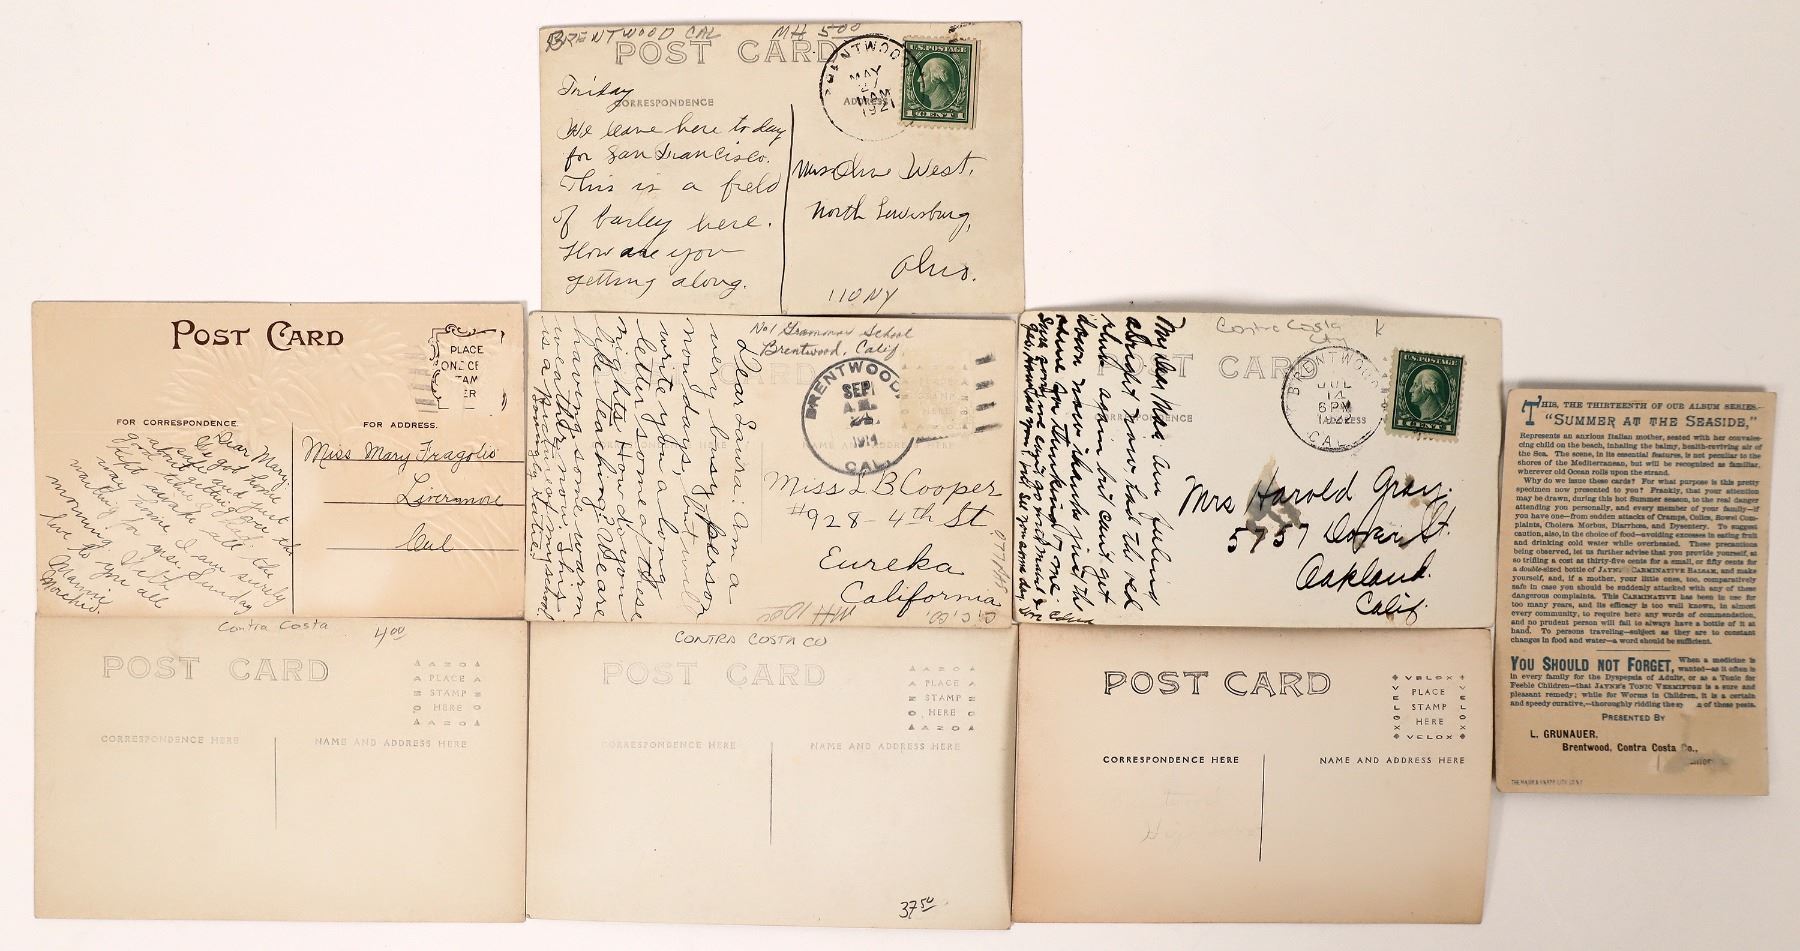 BRENTWOOD CAL MH 5.00
POST CARD
BRENTWOOD
MAY
27
11 AM
1921
U.S. POSTAGE
1 CENT 1
CORRESPONDENCE
ADDRESS
Friday
We leave here today
for San Francisco.
This is a field
of barley here.
How are you
getting along.
Mrs Olive West,
North Lewisburg,
Ohio.
110NY
POST CARD
PLACE
ONE CE
STAM
ER
FOR CORRESPONDENCE.
FOR ADDRESS.
Dear Mary,
We got home
safe and just the
about getting over
Kept awake all the
way home I am surely
waiting for you Sunday
morning. With
love to you all
Mamie
Miss Mary Fragolio
Livermore
Cal
No 1 Grammar School
Brentwood, Calif
BRENTWOOD,
SEP 1
A.M.
1914
CAL.
Dear Laura: Am a
very busy person
mondays, but will
write you a long
letter some of these
nights. How do you
like teaching? We are
having some warm
weather now. This
is a picture of my school
Lovingly Katie,
Miss L B Cooper
#928 - 4th St
Eureka
California
C.C.CO.
MH 10.00
Contra Costa K
POST CARD
BRENTWOOD
JUL
14
6 PM
CAL.
U.S. POSTAGE
1 CENT 1
ADDRESS
My dear Mae am feeling
alright now had the
again but can't get
down now thanks just the
same for thinking of me.
Edna
Mrs Harold Gray.
5757 St.
Oakland.
Calif.
Contra Costa 4.00
POST CARD
AZO
PLACE
STAMP
HERE
AZO
CORRESPONDENCE HERE
NAME AND ADDRESS HERE
CONTRA COSTA CO
POST CARD
AZO
PLACE
STAMP
HERE
AZO
CORRESPONDENCE HERE
NAME AND ADDRESS HERE
37.50
POST CARD
VELOX
PLACE
STAMP
HERE
VELOX
CORRESPONDENCE HERE
NAME AND ADDRESS HERE
THIS, THE THIRTEENTH OF OUR ALBUM SERIES,—
"SUMMER AT THE SEASIDE,"
Represents an anxious Italian mother, seated with her convales-
cing child on the beach, inhaling the balmy, health-reviving air of
the Sea. The scene, in its essential features, is not peculiar to the
shores of the Mediterranean, but will be recognised as familiar,
wherever old Ocean rolls upon the strand.
Why do we issue these cards? For what purpose is this pretty
specimen now presented to you? Frankly, that your attention
may be drawn, during this hot Summer season, to the real danger
attending you personally, and every member of your family—if
you have one—from sudden attacks of Cramps, Colics, Bowel Com-
plaints, Cholera Morbus, Diarrhœa, and Dysentery. To suggest
caution, also, in the choice of food—avoiding excesses in eating fruit
and drinking cold water while overheated. These precautions
being observed, let us further advise that you provide yourself, at
so trifling a cost as thirty-five cents for a small, or fifty cents for
a double-sized bottle of JAYNE'S CARMINATIVE BALSAM, and make
yourself, and, if a mother, your little ones, too, comparatively
safe in case you should be suddenly attacked with any of these
dangerous complaints. This CARMINATIVE has been in use for
too many years, and its efficacy is too well known, in almost
every community, to require here any words of commendation,
and no prudent person will fail to always have a bottle of it at
hand. To persons traveling—subject as they are to constant
changes in food and water—a word should be sufficient.
YOU SHOULD NOT FORGET, When a medicine is
wanted—as it often is
in every family for the Dyspepsia of Adults, or as a Tonic for
Feeble Children—that JAYNE'S TONIC VERMIFUGE is a sure and
pleasant remedy; while for Worms in Children, it is a certain
and speedy curative,—thoroughly ridding the of these pests.
PRESENTED BY
L. GRUNAUER,
Brentwood, Contra Costa Co.,